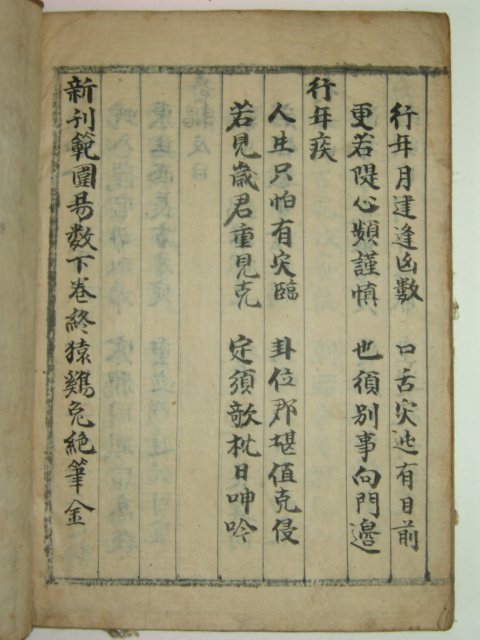 行年月建逢凶數 口舌灾迍有日前
更若隄心頻謹慎 也須別事向門邊
行年疾
人生只怕有灾臨 卦位那堪值克侵
若見歲君重見克 定須欹枕日呻吟
新刊範圍昜数下巻終猿鷄兔絶筆金